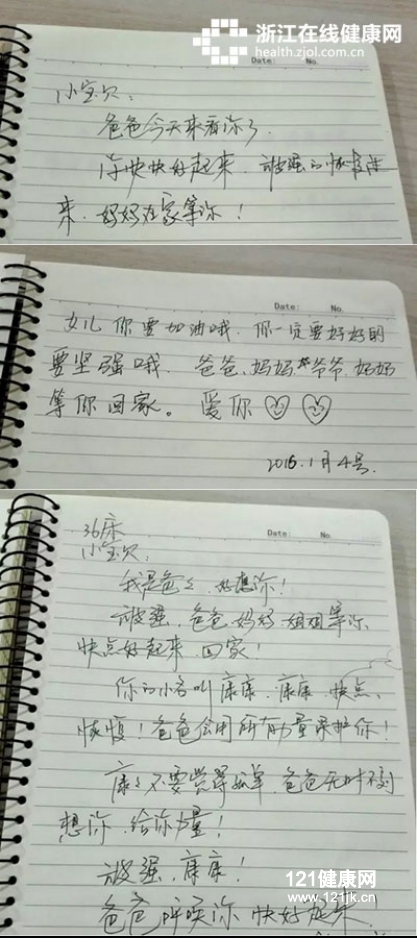 浙江在线健康网
health.zjol.com.cn
Date: No.
小宝贝:
爸爸今天来看你了.
你快快好起来. 坚强的恢复过
来. 妈妈在家等你!
Date: No.
女儿 你要加油哦. 你一定要好好的
要坚强哦. 爸爸.妈妈.爷爷.妈妈
等你回家。爱你
2015.1月4号.
Date: No.
36床
小宝贝:
我是爸爸.好想你!
坚强.爸爸.妈妈.姐姐等你
快点好起来.回家!
你的小名叫康康.康康.快点
恢复!爸爸会用所有力量保护你!
康康不要觉得孤单.爸爸无时不刻
想你.给你力量!
坚强.康康!
爸爸呼唤你 快好起来!
121健康网
www.121jk.cn